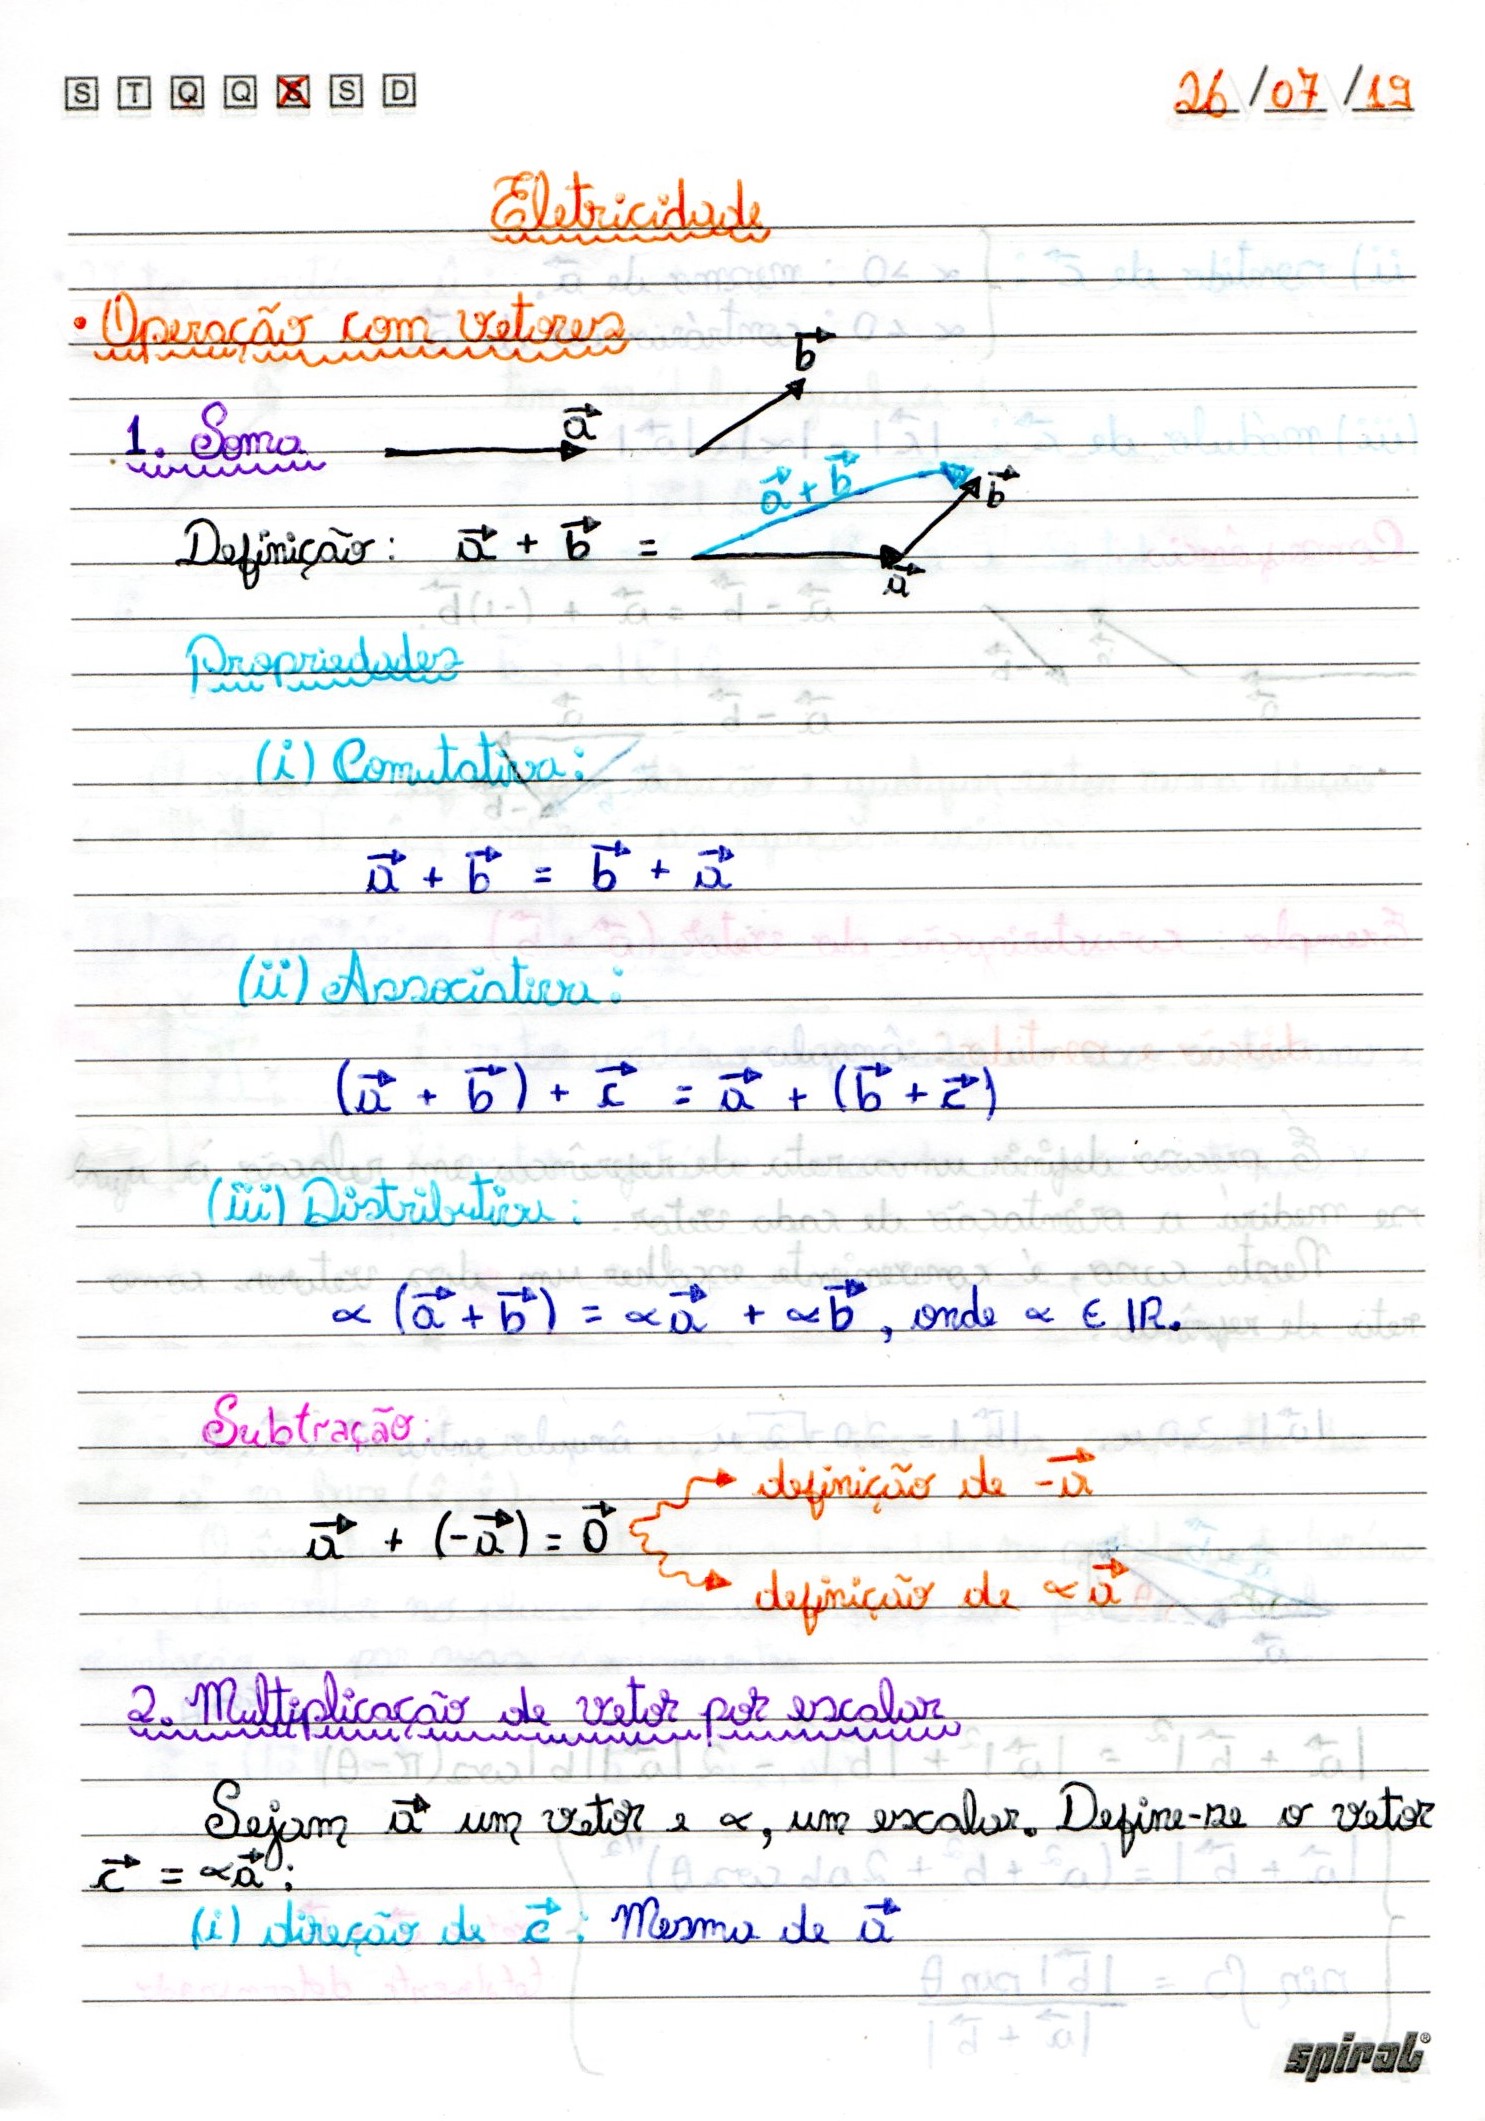 S T Q Q S S D 26/07/19
Eletricidade
• Operação com vetores
1. Soma a⃗ b⃗
Definição: a⃗ + b⃗ = a⃗ + b⃗ b⃗ a⃗
Propriedades
(i) Comutativa:
a⃗ + b⃗ = b⃗ + a⃗
(ii) Associativa:
(a⃗ + b⃗) + c⃗ = a⃗ + (b⃗ + c⃗)
(iii) Distributiva:
α (a⃗ + b⃗) = αa⃗ + αb⃗, onde α ∈ IR.
Subtração:
a⃗ + (-a⃗) = 0⃗
definição de -a⃗
definição de αa⃗
2. Multiplicação de vetor por escalar
Sejam a⃗ um vetor e α, um escalar. Define-se o vetor
c⃗ = αa⃗:
(i) direção de c⃗: Mesma de a⃗
spiral®